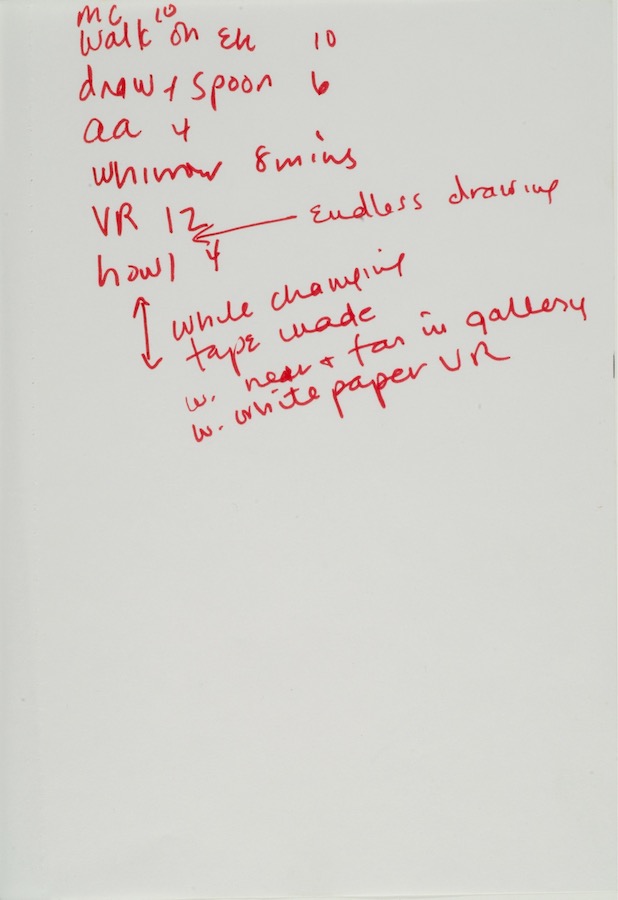 MC 10
Walk on 10
draw + spoon 6
aa 4
8 mins
VR 12 Endless drawing
howl 4
while changing
tape made
w. near + far in gallery
w. white paper VR